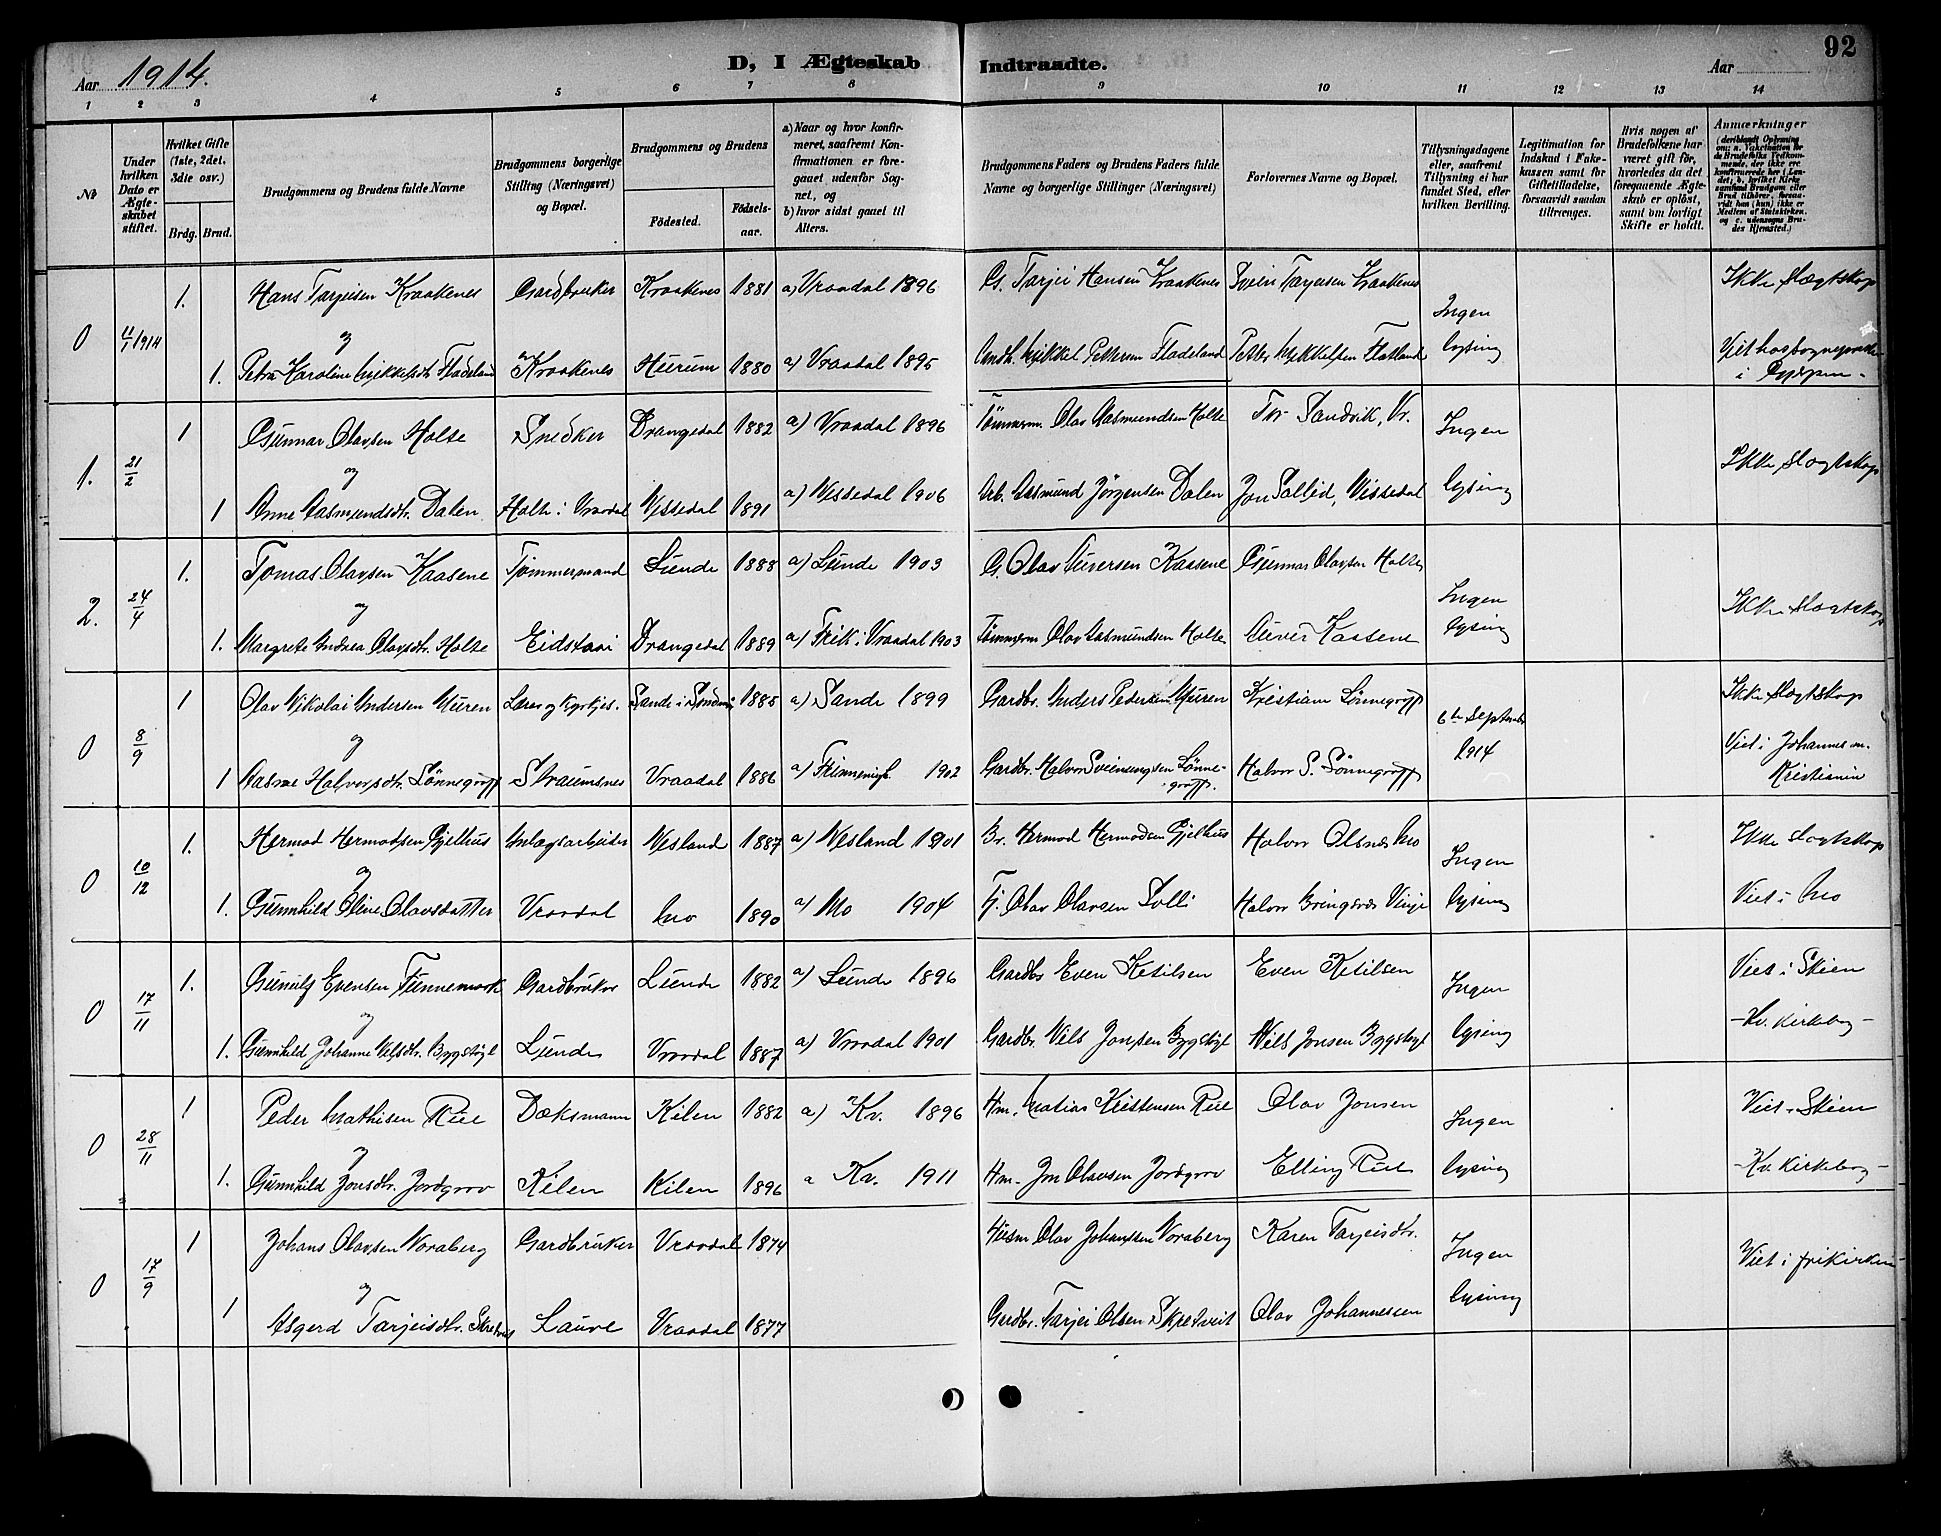 92
Aar 1914.
D, I Ægteskab Indtraadte.
Aar
1 2 3 4 5 6 7 8 9 10 11 12 13 14
No
Under hvilken Dato er Ægteskabet stiftet.
Hvilket Gifte (1ste, 2det, 3die osv.)
Brdg. Brud.
Brudgommens og Brudens fulde Navne
Brudgommens borgerlige Stilling (Næringsvei) og Bopæl.
Brudgommens og Brudens
Fødested. Fødsels-aar.
a) Naar og hvor konfirmeret, saafremt Konfirmationen er foregaaet udenfor Sognet, og
b) hvor sidst gaaet til Alters.
Brudgommens Faders og Brudens Faders fulde Navne og borgerlige Stillinger (Næringsvei)
Forlovernes Navne og Bopæl.
Tillysningsdagene eller, saafremt Tillysning ei har fundet Sted, efter hvilken Bevilling.
Legitimation for Indskud i Fakkassen samt for Giftetilladelse, forsaavidt saadan tiltrænges.
Hvis nogen af Brudefolkene har været gift før, hvorledes da det foregaaende Ægteskab er opløst, samt om lovligt Skifte er holdt.
Anmærkninger
0 11/1 1914 1. Hans Tarjeisen Kraakenes Gardbruker Kraakenes 1881 a) Vraadal 1896 G. Tarjei Hansen Kraakenes Svein Tarjeisen Kraakenes Ingen Ikke Slægtskap
og
1. Petra Karoline Mikkelsdtr. Fladeland Kraakenes Hurum 1880 a) Vraadal 1895 Mikkel Pettersen Fladeland Petter Mikkelsen Flatland lysing
1. 21/2 1 Gunnar Olavsen Holte Snedker Drangedal 1882 a) Vraadal 1896 Tømmerm. Olav Aasmundsen Holte Tor Sandvik, Vr. Ingen Ikke Slægtskap
og
1 Anne Aasmundsdtr. Dalen Holte i Vraadal Nissedal 1891 a) Nissedal 1906 Arb. Aasmund Jørgensen Dalen Jon Solleid, Nissedal lysing
2. 24/4 1. Tomas Olavsen Kaasene Tømmermand Lunde 1888 a) Lunde 1903 G. Olav Auversen Kaasene Gunnar Olavsen Holte Ingen Ikke Slægtskap
og
1. Margrete Andrea Olavsdtr. Holte Eidstaai Drangedal 1889 a) Frik. i Vraadal 1903 Tømmerm Olav Aasmundsen Holte Auver Kaasene lysing
0 8/9 1 Olav Nikolai Andersen Muren Lærer og Kyrkjes. Sande i Søndm. 1885 a) Sande 1899 Gardbr. Anders Pedersen Muren Kristian Lønnegrav 6te September 1914 Ikke Slægtskap
og
1 Aasne Halvorsdtr. Lønnegrav Straumsnes Vraadal 1886 a) Frimenigh. 1902 Gardbr. Halvor Sveinungsen Lønnegrav. Halvor S. Lønnegrav Viet i Johannes m. Kristiania
0 10/12 1. Hermod Hermodsen Gjelhus Anlægsarbeider Nesland 1887 a) Nesland 1901 Br. Hermod Hermodsen Gjelhus Halvor Olsnes Mo Ingen Ikke Slægtskap
og
1. Gunnhild Oline Olavsdatter Vraadal Mo 1890 a) Mo 1904 Tj. Olav Olavsen Solli Halvor Bringsvær Vinje lysing Viet i Mo
0 17/11 1. Gunnulf Evensen Funnemark Gardbruker Lunde 1882 a) Lunde 1896 Gardbr Even Ketilsen Even Ketilsen Ingen Viet i Skien
og
1. Gunnhild Johanne Nilsdtr. Bygstøyl Lunde Vraadal 1887 a) Vraadal 1901 Gardbr. Nils Jonsen Bygstøyl Nils Jonsen Bygstøyl lysing - Kv. Kirkebog -
0 28/11 1 Peder Mathisen Rue Dæksmann Kilen 1882 a) Kv. 1896 Hm. Matias Kristensen Rue Olav Jonsen Ingen Viet i Skien
og
1. Gunnhild Jonsdtr. Jordgrov Kilen Kilen 1896 a Kv. 1911 Hm. Jon Olavsen Jordgrov Elling Rue lysing - Kv. Kirkebog -
0 17/9 1 Johans Olavsen Voraberg Gardbruker Vraadal 1874 Husm Olav Johanssen Voraberg Karen Tarjeisdtr. Ingen Viet i frikirken
og
1 Asgerd Tarjeisdtr. Lauve Vraadal 1877 Gardbr. Tarjei Olsen Skredtveit Olav Johannessen lysing